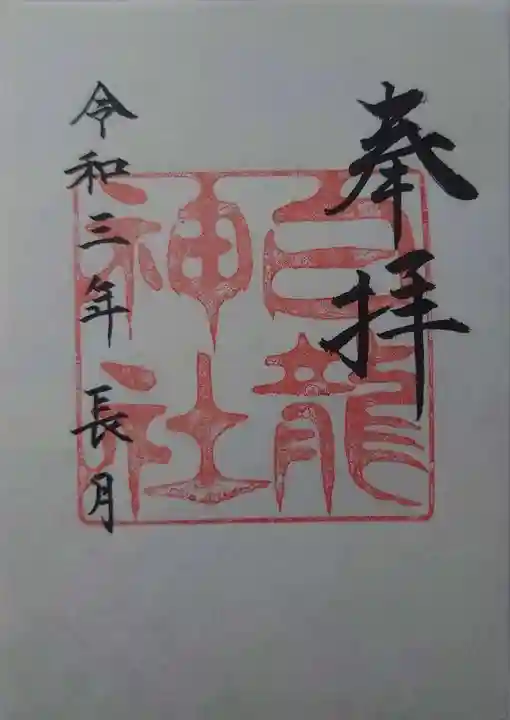 奉拝
白龍
神社
令和三年長月